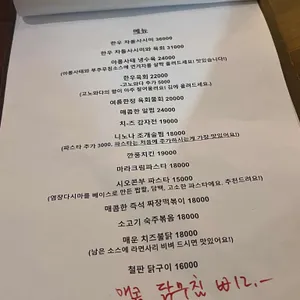 메뉴
한우 차돌사시미 36000
한우 차돌사시미와 육회 31000
아롱사태 냉수육 24000
(아롱사태와 부추무침소스에 연겨자를 살짝 올려드세요) 맛있습니다!
한우육회 22000
-고노와다 추가 5000
(고노와다의 향이 아주 잘어울려요! 김에 올려드세요.)
여름한정 육회물회 25000
매콤한 알찜 24000
치즈 감자전 19000
니노나 조개술찜 18000
(파스타 추가 3000, 파스타는 처음에 추가하시는게 가장 맛있어요!)
깐풍치킨 19000
마라크림파스타 18000
시오콘부 파스타 15000
(염장다시마를 베이스로 만든 짭짤, 담백, 고소한 파스타예요. 추천드려요!)
매콤한 즉석 짜장떡볶이 18000
소고기 숙주볶음 18000
매운 치즈불닭 18000
(남은 소스에 라면사리 비벼 드시면 맛있어요!)
철판 닭구이 16000
매콤 닭무침